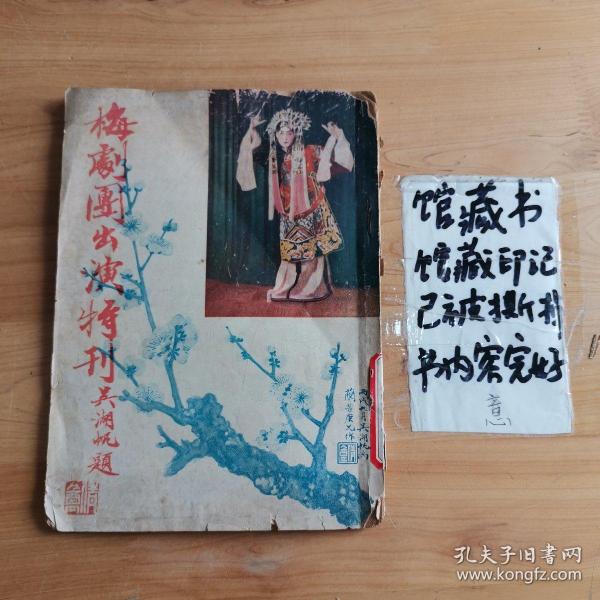 梅劇團出演特刊
吳湖帆題
馆藏书
馆藏印记
已被撕掉
书内容完好
意
孔夫子旧书网
www.kongfz.com